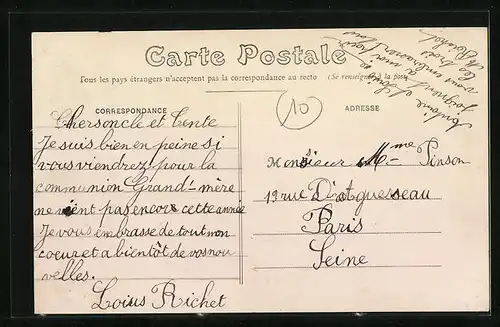 Carte Postale
Tous les pays étrangers n'acceptent pas la correspondance au recto (Se renseigner à la poste)
CORRESPONDANCE
ADRESSE
10
Chersoncle et Tente
Je suis bien en peine si
vous viendrez pour la
communion Grand-mère
ne vient pas encore cette année
Je vous embrasse de tout mon
coeur et a bientôt de vos nou
velles.
Loius Richet
Monsieur Mme Pinson
13 rue D'Aguesseau
Paris
Seine
vous embrasser tous
les trois